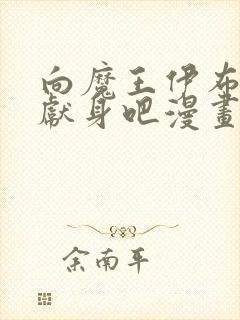 向魔王伊布
獻身吧漫畫
余南平